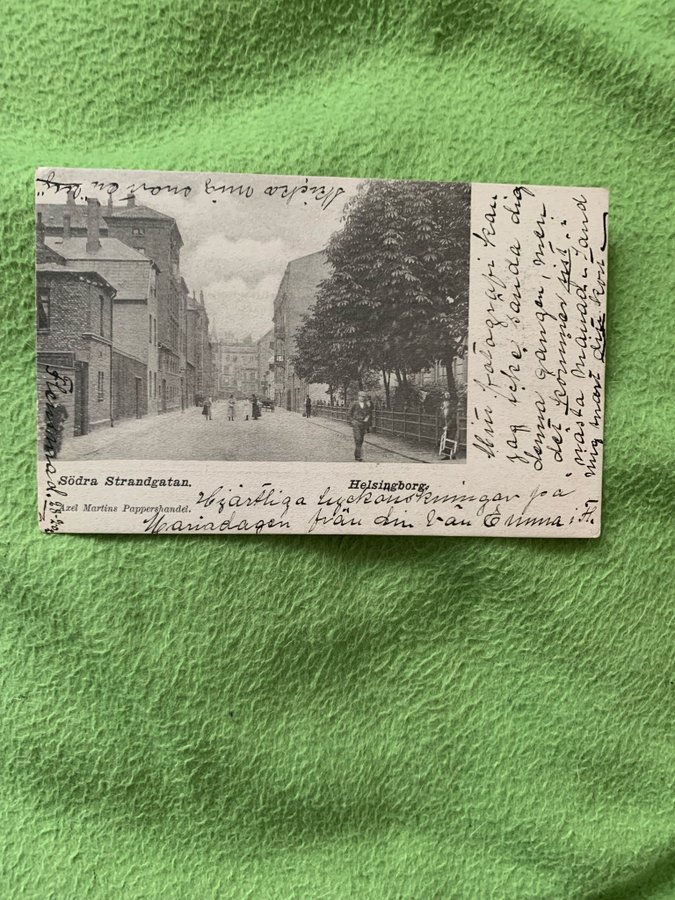 Skicka mig snart en
Södra Strandgatan.
Helsingborg.
Axel Martins Pappershandel.
Hjärtliga lyckönskningar på
Mariadagen från din Vän Emma H.
Min fotografi kan
jag icke sända dig
denna gången, men
det kommer sist i
nästa månad. Sänd
mig snart ditt kort